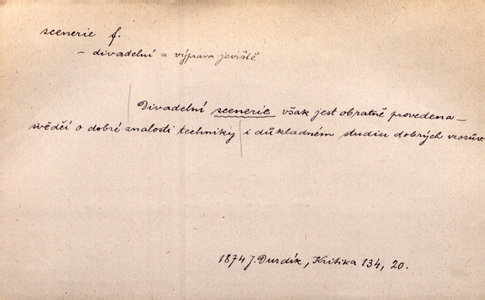 scenerie f.
- divadelní = výprava jeviště
Divadelní scenerie však jest obratně provedena -
svědčí o dobré znalosti techniky i důkladném studiu dobrých vzorův
1874 J. Durdík, Kritika 134, 20.